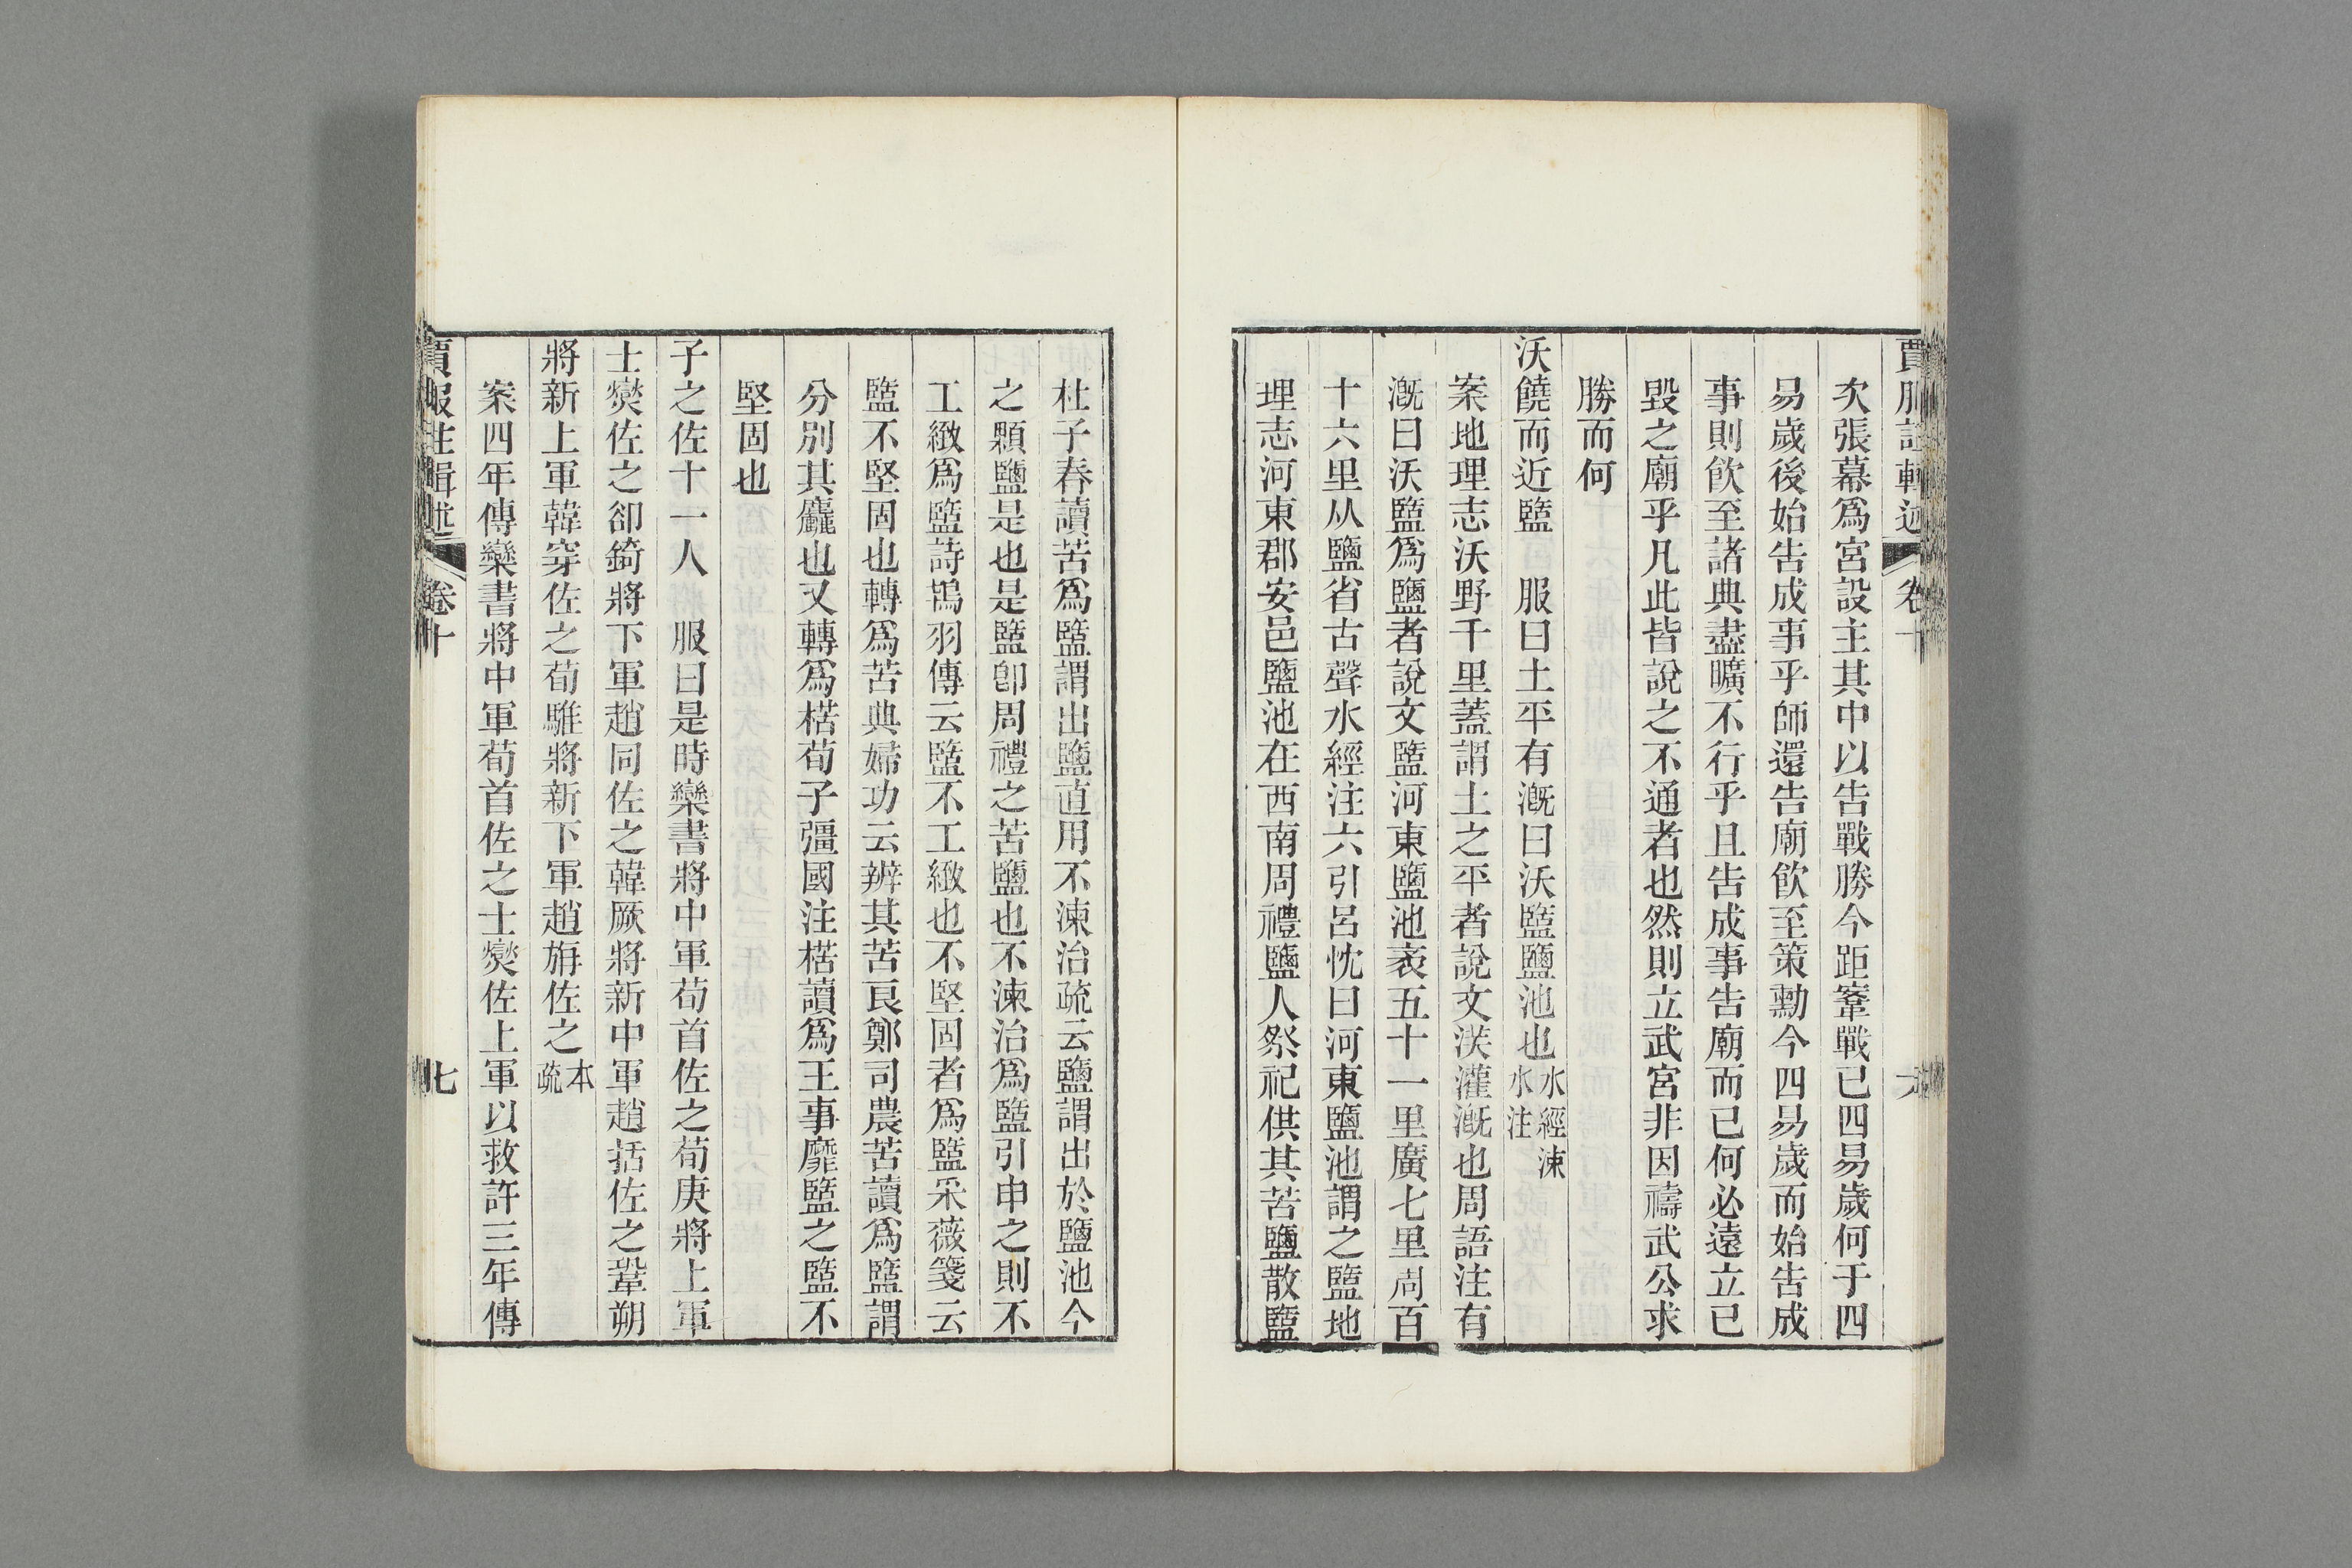 賈服註輯述 卷十 六
次張幕爲宮設主其中以告戰勝今距鞌戰已四易歲何于四
易歲後始告成事乎師還告廟飮至策勳今四易歲而始告成
事則飮至諸典盡曠不行乎且告成事告廟而已何必遠立已
毀之廟乎凡此皆說之不通者也然則立武宮非因禱武公求
勝而何
沃饒而近盬 服曰土平有漑曰沃盬鹽池也水經涑水注
案地理志沃野千里蓋謂土之平者說文浂灌漑也周語注有
漑曰沃盬爲鹽者說文盬河東鹽池袤五十一里廣七里周百
十六里从鹽省古聲水經注六引呂忱曰河東鹽池謂之盬地
理志河東郡安邑鹽池在西南周禮鹽人祭祀供其苦鹽散鹽
杜子春讀苦爲盬謂出鹽直用不湅治疏云鹽謂出於鹽池今
之顆鹽是也是盬卽周禮之苦鹽也不湅治爲盬引申之則不
工緻爲盬詩鴇羽傳云盬不工緻也不堅固者爲盬采薇箋云
盬不堅固也轉爲苦典婦功云辨其苦良鄭司農苦讀爲盬謂
分別其麤也又轉爲楛荀子彊國注楛讀爲王事靡盬之盬不
堅固也
子之佐十一人 服曰是時欒書將中軍荀首佐之荀庚將上軍
士燮佐之郤錡將下軍趙同佐之韓厥將新中軍趙括佐之鞏朔
將新上軍韓穿佐之荀騅將新下軍趙旃佐之本疏
案四年傳欒書將中軍荀首佐之士燮佐上軍以救許三年傳
賈服注輯述 卷十 七